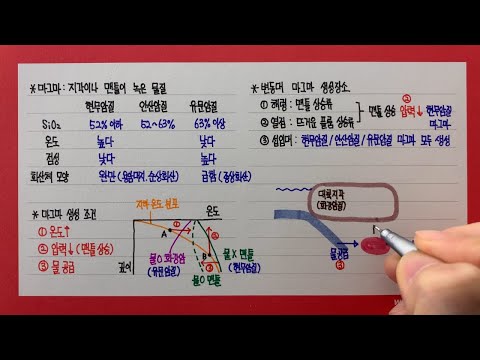 * 마그마 : 지각이나 맨틀이 녹은 물질
현무암질 안산암질 유문암질
SiO₂ 52% 이하 52~63% 63% 이상
온도 높다 낮다
점성 낮다 높다
화산체 모양 완만 (용암대지, 순상화산) 급함 (종상화산)
* 마그마 생성 조건
① 온도↑
② 압력↓ (맨틀 상승)
③ 물 공급
지하 온도 분포
온도
깊이
A
B
①
②
③
물O 화강암
(유문암질)
물O 맨틀
물X 맨틀
(현무암질)
* 변동대 마그마 생성장소
① 해령 : 맨틀 상승류
② 열점 : 뜨거운 플룸 상승류
맨틀 상승 ② 압력↓ 현무암질 마그마
③ 섭입대 : 현무암질/안산암질/유문암질 마그마 모두 생성
대륙지각
(화강암질)
물공급
③